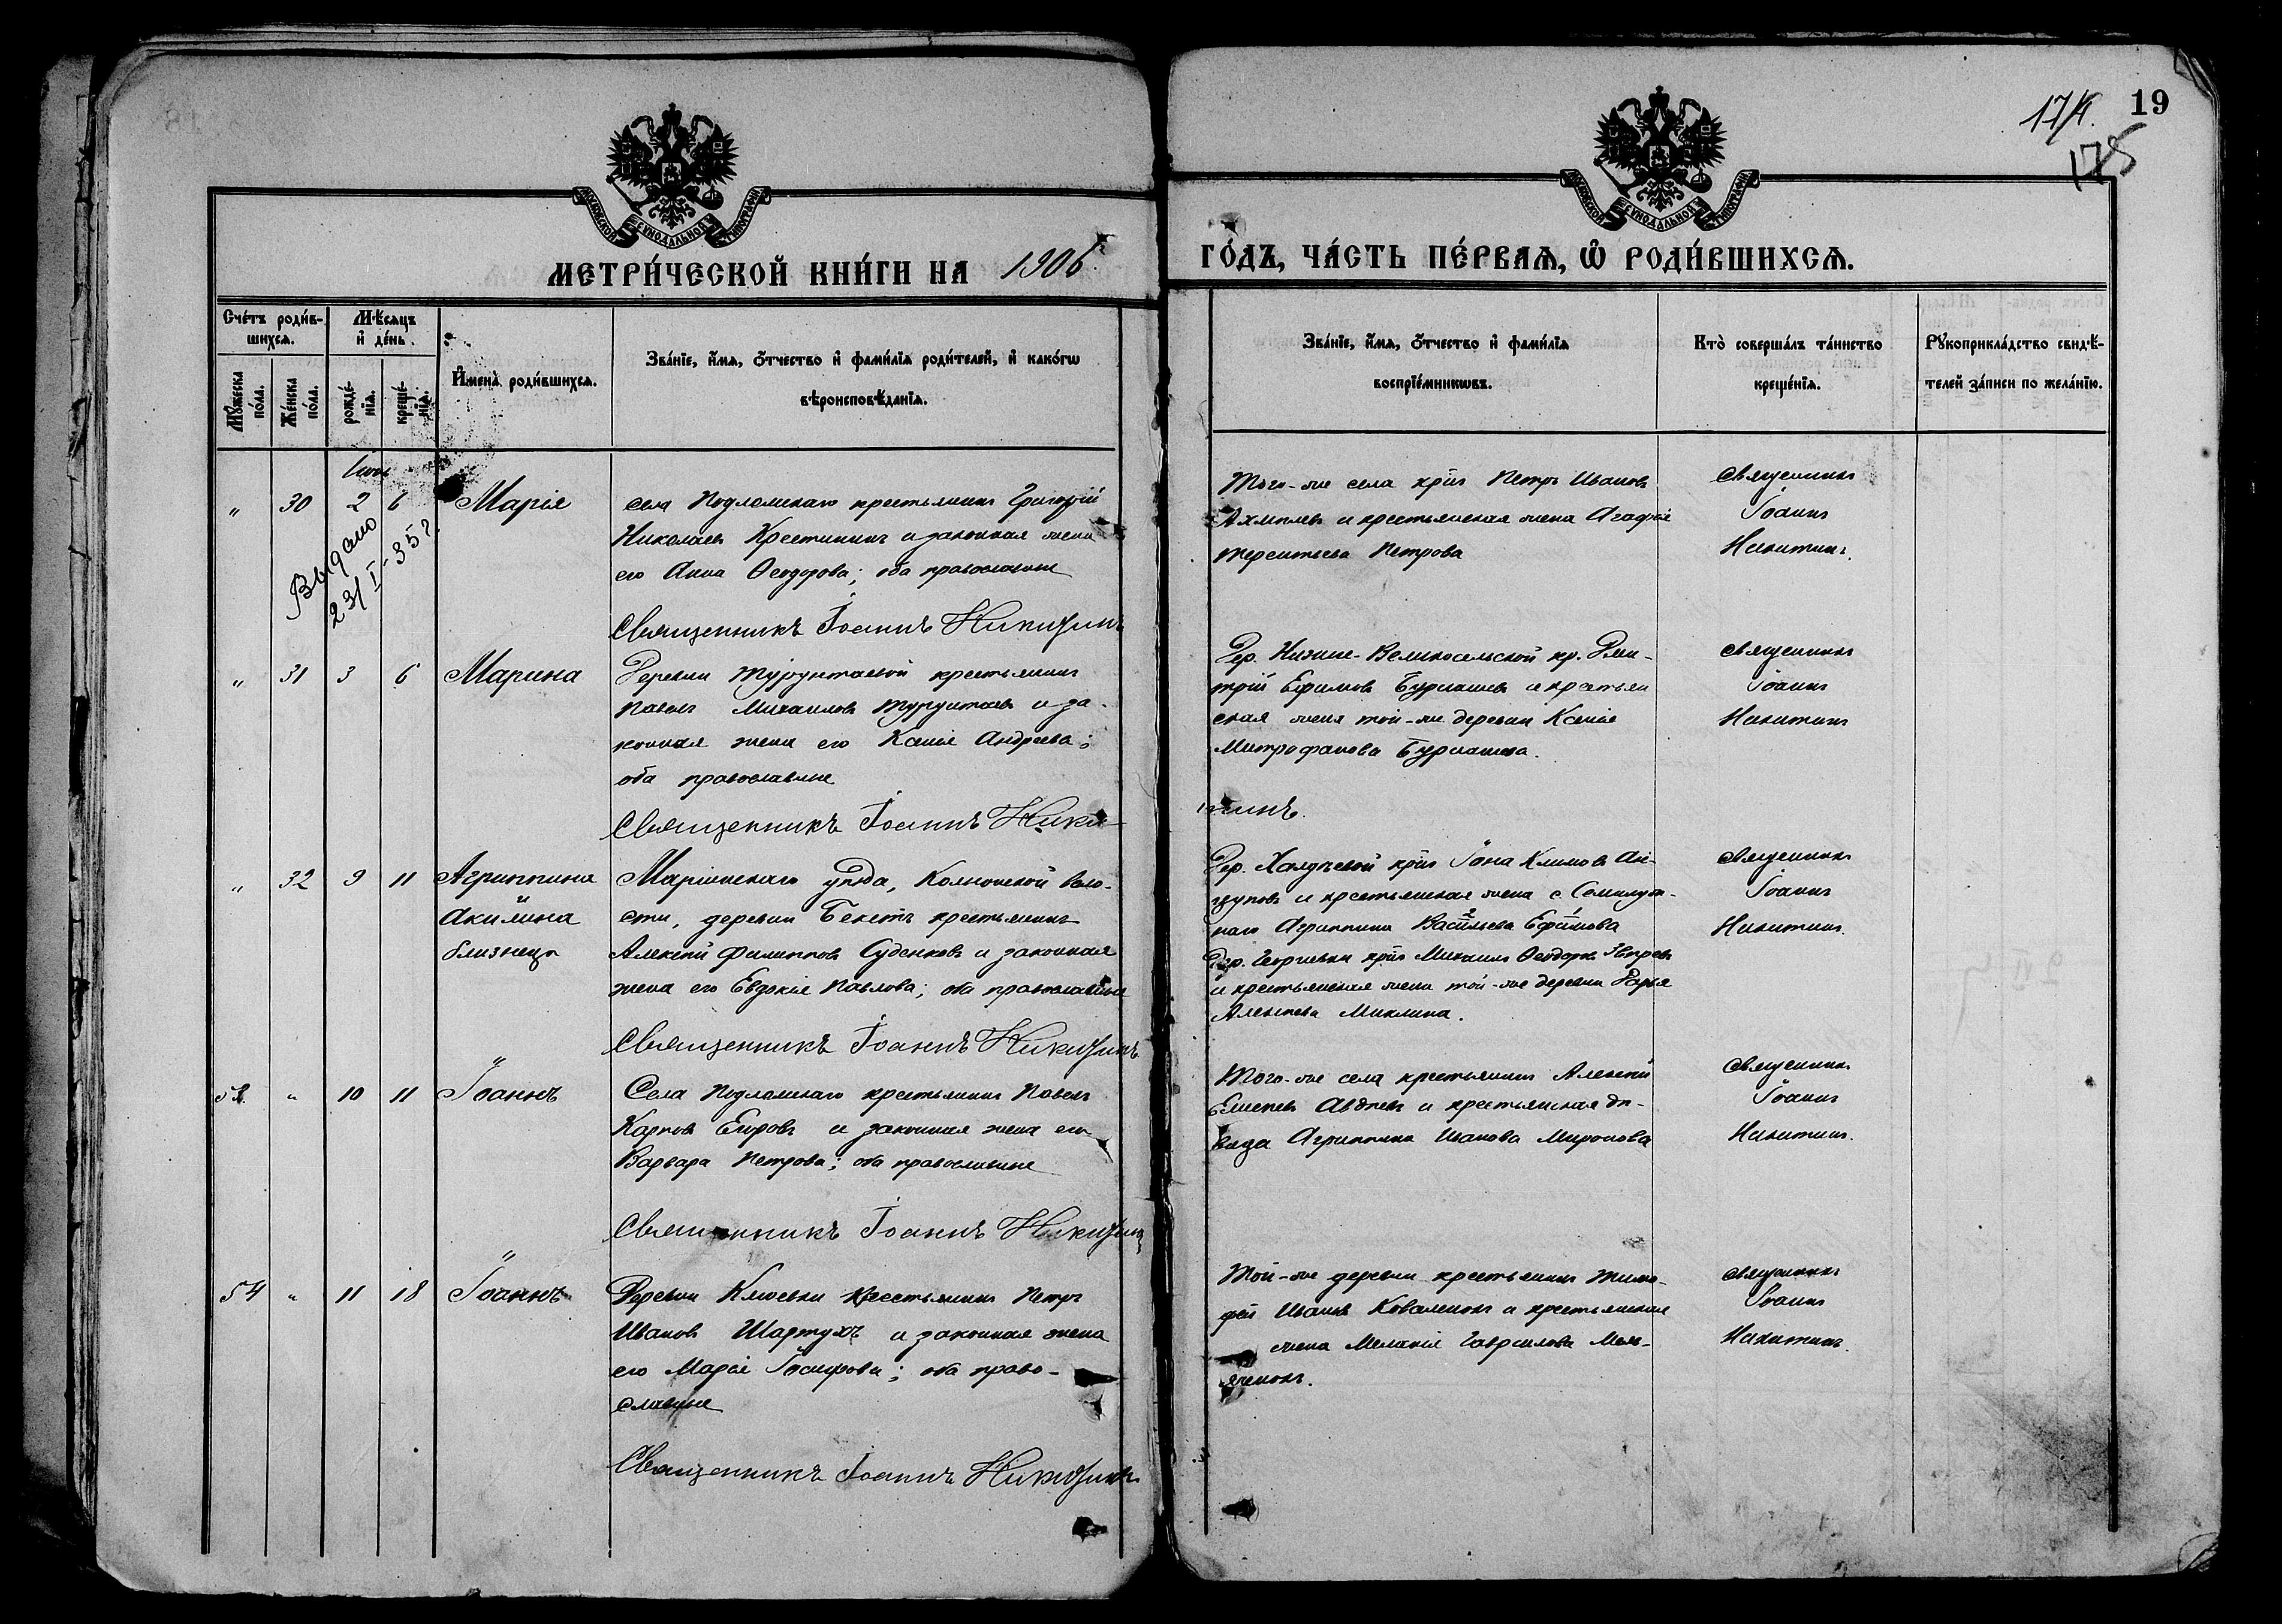 174.
19
175
МОСКОВСКОЙ СУНОДАЛЬНОЙ ТИПОГРАФІИ
МОСКОВСКОЙ СУНОДАЛЬНОЙ ТИПОГРАФІИ
МЕТРИ́ЧЕСКОЙ КНИ́ГИ НА 1906
ГО́ДЪ, ЧА́СТЬ ПЕ́РВАѦ, Ѡ РОДИ́ВШИХСѦ.
Сче́тъ роди́в-
шихсѧ.
Мꙋ́жеска по́ла.
Же́нска по́ла.
Мѣ́сѧцъ
и де́нь.
рожде́-
нїѧ.
креще́-
нїѧ.
Имена̀ роди́вшихсѧ.
Зва́нїе, и́мѧ, ѻ́тчество и фами́лїѧ роди́телей, и како́гѡ
вѣроисповѣ́данїѧ.
Зва́нїе, и́мѧ, ѻ́тчество и фами́лїѧ
воспрїе́мникѡвъ.
Кто̀ соверша́лъ та́инство
креще́нїѧ.
Рꙋкоприкла́дство свидѣ́-
телей за́писи по жела́нїю.
"
30
2
6
Марія
села Подломскаго крестьянинъ Григорій
Николаевъ Крестининъ и законная жена
его Анна Ѳеодорова; оба православные
Выдано
23/I-35 г.
Священникъ Іоаннъ Никитинъ
Того-же села крᵗⁿ Петръ Ивановъ
и крестьянская жена Агафія
Терентьева Петрова
Священникъ
Іоаннъ
Никитинъ.
"
31
3
6
Марина
Деревни Турунтаевой крестьянинъ
Павелъ Михаиловъ Турунтаевъ и за-
конная жена его Ксенія Андреева;
оба православные
Священникъ Іоаннъ Ники-
тинъ.
Дер. Нижне-Великосельской кр. Дми-
трій Ефимовъ Бурнашевъ и крестьян
ская жена той-же деревни Ксенія
Митрофанова Бурнашева.
Священникъ
Іоаннъ
Никитинъ
"
32
9
11
Агриппина
и
Акилина
близнецы
Маріинскаго уѣзда, Колыонской воло-
сти, деревни крестьянинъ
Алексѣй Филипповъ Суденковъ и законная
жена его Евдокія Павлова; оба православные
Священникъ Іоаннъ Никитинъ
Дер. Халдѣевой крᵗⁿ Іона Климовъ Ан-
цуповъ и крестьянская жена с. Семилуж-
наго Агриппина Васильева Ефимова
Дер. Георгіевки крᵗⁿ Михаилъ Ѳеодоровъ Звѣревъ
и крестьянская жена той-же деревни Дарья
Алексѣева Миклина.
Священникъ
Іоаннъ
Никитинъ.
53
"
10
11
Іоаннъ
Села Подломскаго крестьянинъ Павелъ
Карповъ и законная жена его
Варвара Петрова; оба православные
Священникъ Іоаннъ Никитинъ
Того-же села крестьянинъ Алексѣй
Елисеевъ Авдѣевъ и крестьянская дѣ-
вица Агриппина Иванова Миронова
Священникъ
Іоаннъ
Никитинъ.
54
"
11
18
Іоаннъ
Деревни Клюевки крестьянинъ Петръ
Ивановъ Шартухъ и законная жена
его Марія Іосифова; оба право-
славные
Священникъ Іоаннъ Никитинъ
Той-же деревни крестьянинъ Тимо-
фей Ивановъ Коваленокъ и крестьянская
жена Меланія Гаврилова
Священникъ
Іоаннъ
Никитинъ.